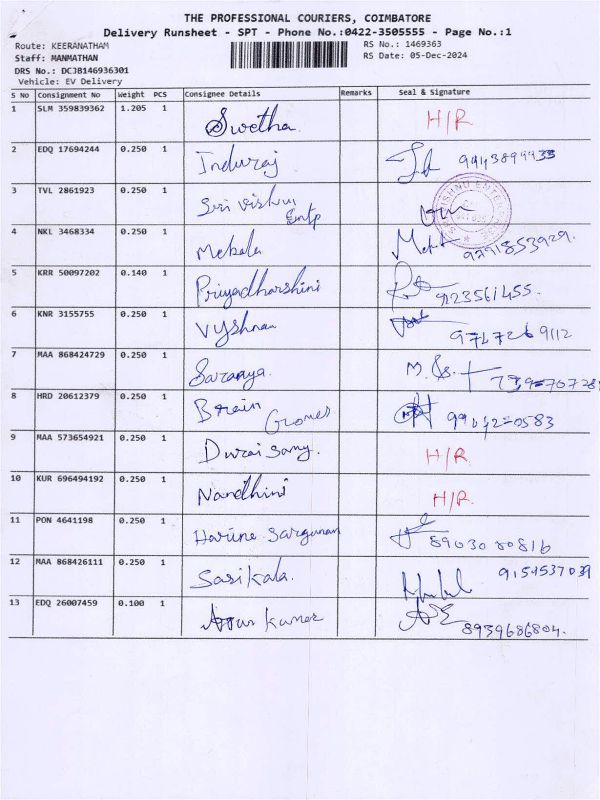 THE PROFESSIONAL COURIERS, COIMBATORE
Delivery Runsheet - SPT - Phone No.:0422-3505555 - Page No.:1
Route: KEERANATHAM RS No.: 1469363
Staff: MANMATHAN RS Date: 05-Dec-2024
DRS No.: DCJB146936301
Vehicle: EV Delivery
S No Consignment No Weight PCS Consignee Details Remarks Seal & Signature
1 SLM 359839362 1.205 1 Swetha. H/R
2 EDQ 17694244 0.250 1 Induraj
3 TVL 2861923 0.250 1 Sri vishnu
Entp
4 NKL 3468334 0.250 1 Mekala
5 KRR 50097202 0.140 1 Priyadharshini 9123561455.
6 KNR 3155755 0.250 1 Vyshnav
7 MAA 868424729 0.250 1 Saranya.
8 HRD 20612379 0.250 1 Brain
9 MAA 573654921 0.250 1 Durai samy. H/R
10 KUR 696494192 0.250 1 Nandhini H/R
11 PON 4641198 0.250 1 Sargunan
12 MAA 868426111 0.250 1 Sasikala. 9159537039
13 EDQ 26007459 0.100 1 kumar 8939686804.